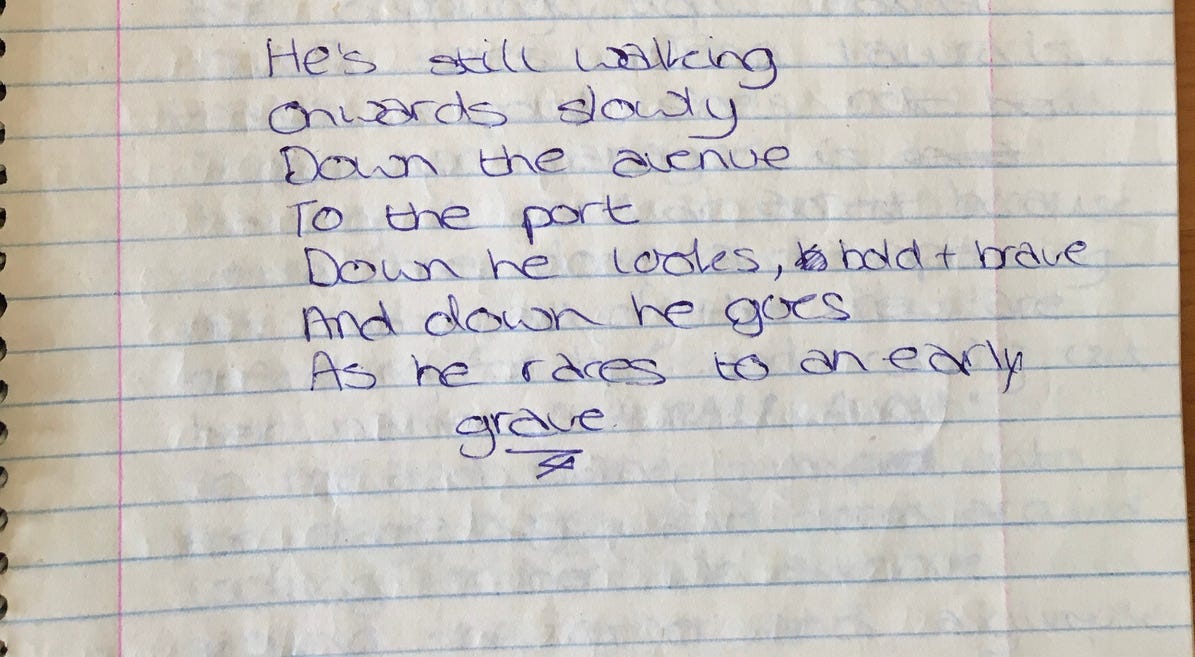 He's still walking
onwards slowly
Down the avenue
To the port
Down he looks, bold + brave
And down he goes
As he races to an early
grave.